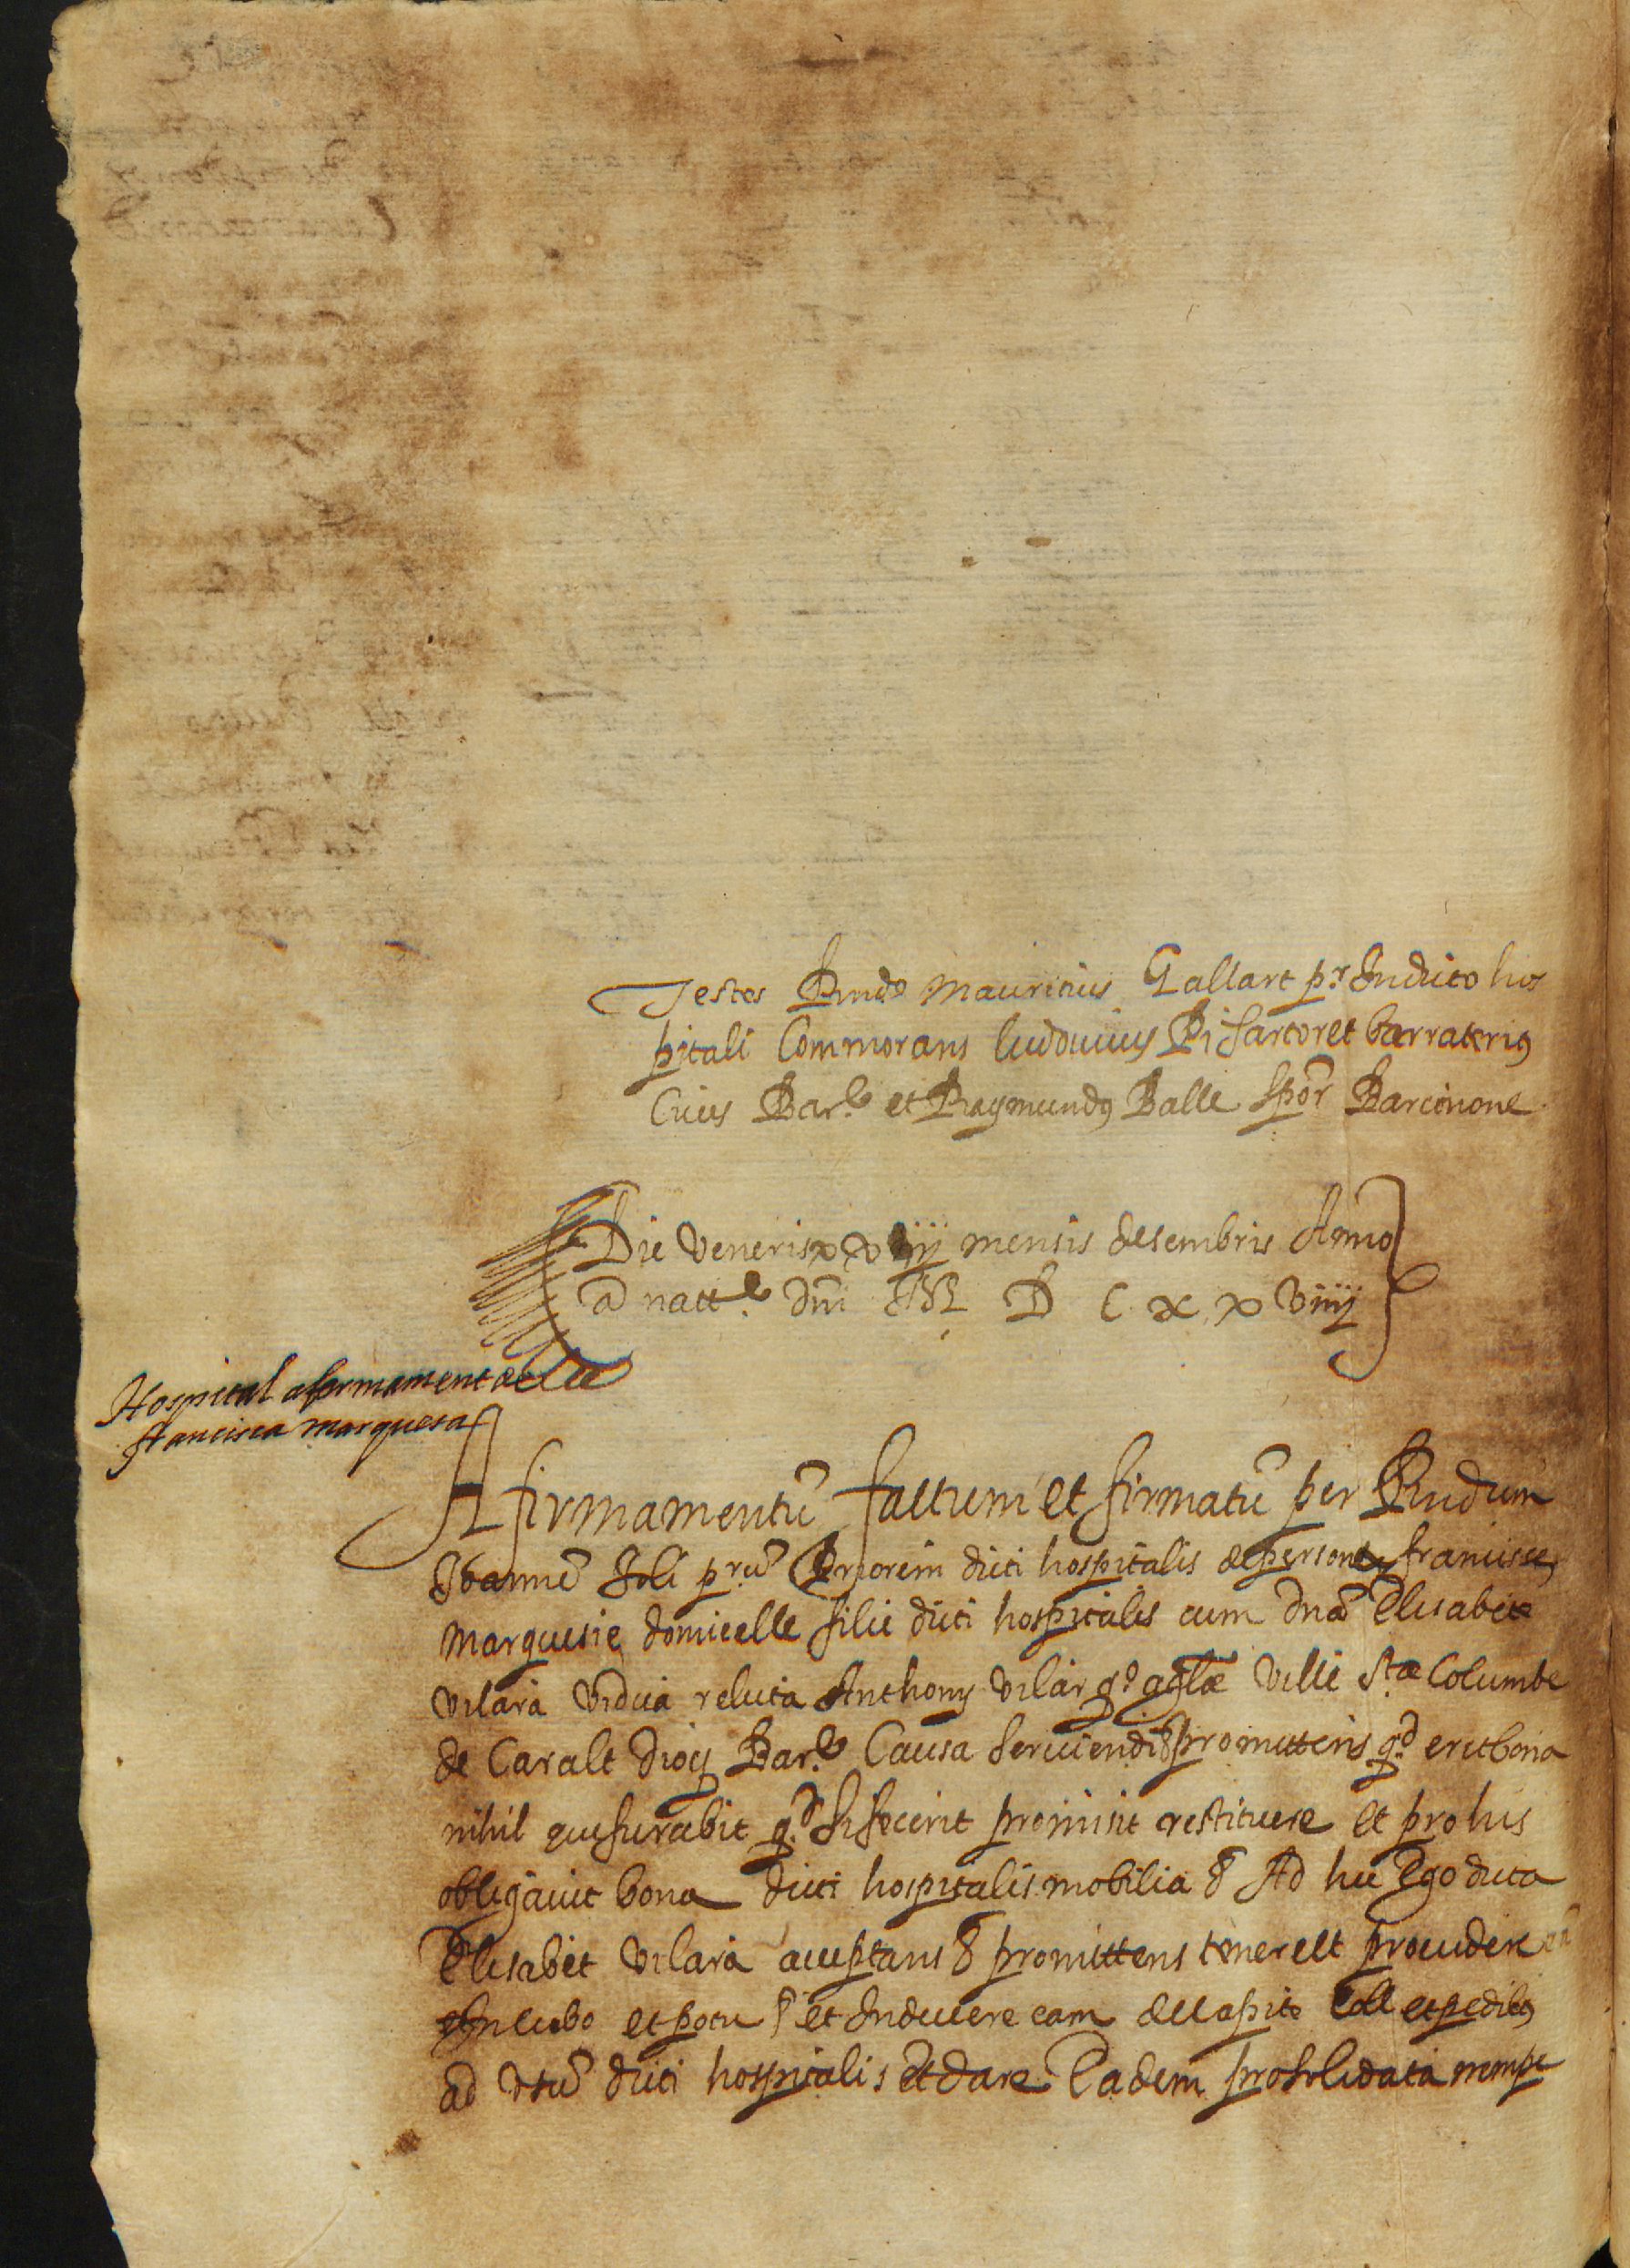 Testes Rndo Mauritius Gallart pr. In dicto hos
pitali Commorans ludovicus Pi sartor et barraterius
Civis Bar.e et Raymundus Balle Spor Barcinone
Die Veneris xxviiij mensis desembris Anno
a nat.e dni M D C x x viiij
Hospital afermament de
francisca marquesa
Afirmamentu factum et firmatu per Rndum
Joanne Soli pru Priorem dicti hospitalis de persone francisce
Marquesie domicelle filie dicti hospitalis cum dna Elisabet
Vilara vidua relicta Anthony Vilar qo agle Ville Sta Columbe
de Caralt dioy Bar.e Causa serviendi & promittens qd erit bona
nihil que furabit qd si fecerit promisit restituere et pro his
obligavit bona dicti hospitalis mobilia & Ad hec Ego dicta
Elisabet Vilara acceptans & promittens tenere et providere
in cibo et potu & et Induere eam de capite et pedibus
ad usu dicti hospitalis Et dare Eadem pro solidata nempe